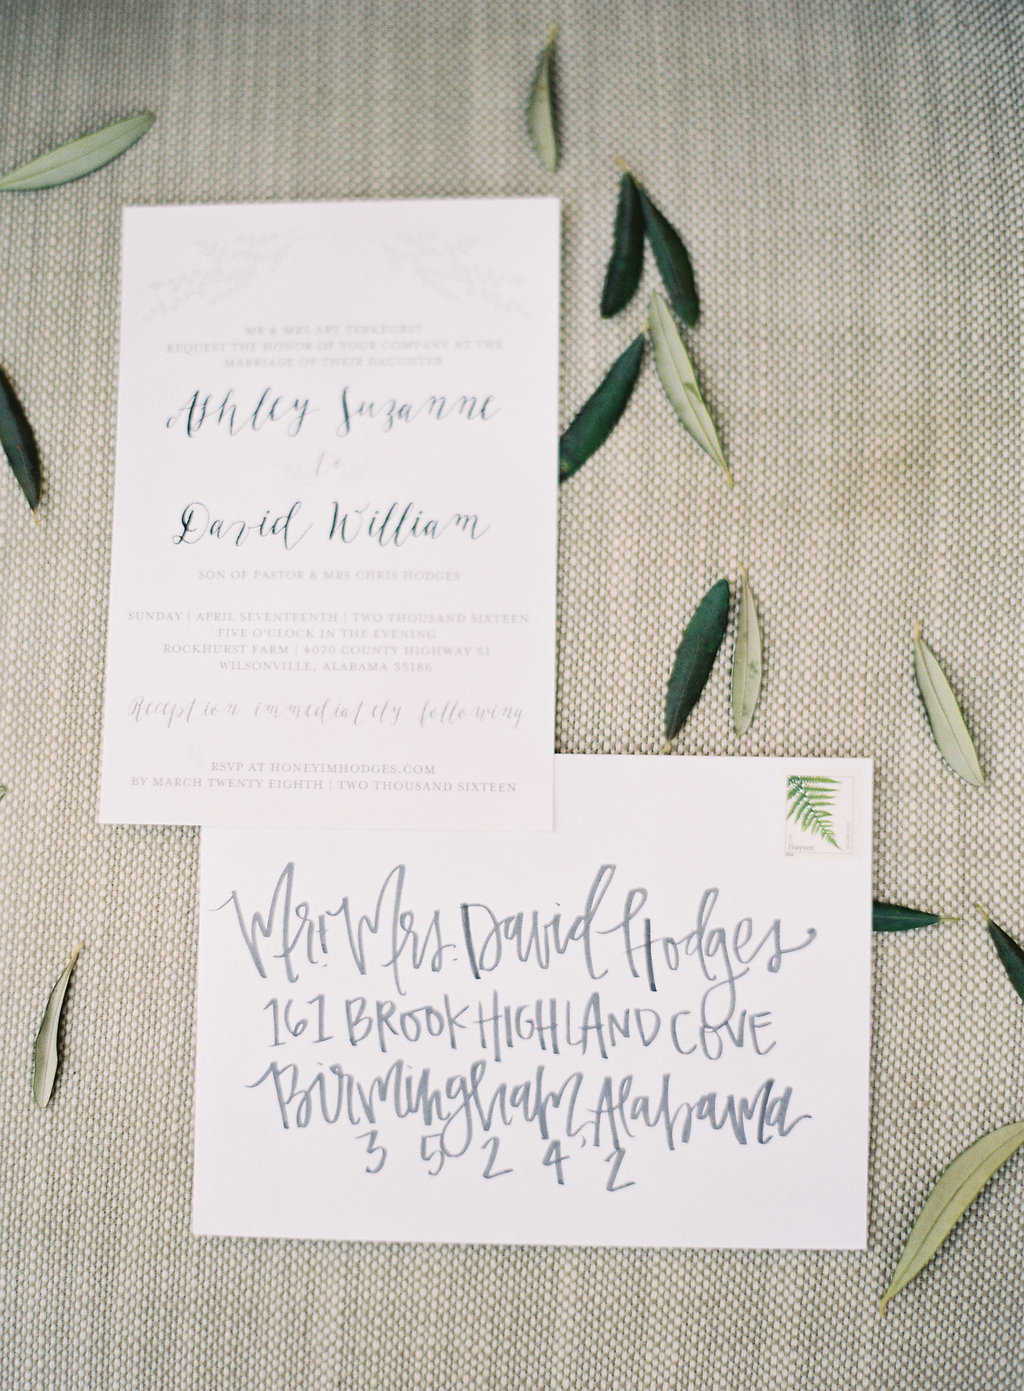 MR & MRS ART TERKEURST
REQUEST THE HONOR OF YOUR COMPANY AT THE
MARRIAGE OF THEIR DAUGHTER
Ashley Suzanne
to
David William
SON OF PASTOR & MRS CHRIS HODGES
SUNDAY | APRIL SEVENTEENTH | TWO THOUSAND SIXTEEN
FIVE O'CLOCK IN THE EVENING
ROCKHURST FARM | 4070 COUNTY HIGHWAY 51
WILSONVILLE, ALABAMA 35186
Reception immediately following
RSVP AT HONEYIMHODGES.COM
BY MARCH TWENTY EIGHTH | TWO THOUSAND SIXTEEN
Forever
Mr + Mrs. David Hodges
161 BROOK HIGHLAND COVE
Birmingham, Alabama
3 5 2 4 2